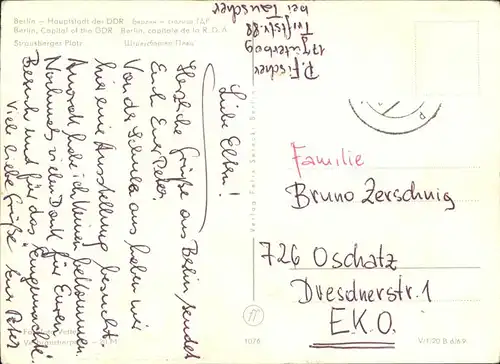 Berlin – Hauptstadt der DDR
Berlin, Capital of the GDR Berlin, capitale de la R.D.A
Strausberger Platz
P. Fischer
17 Jüterbog
Triftstr. 88
bei Tauscher
Liebe Eltern!
Herzliche Grüße aus Berlin sendet
Euch Euer Peter.
Von der Schule aus haben wir
hier eine Ausstellung besucht.
Auswahl habe ich keinen bekommen.
Nochmals vielen Dank für Euren
Besuch und für das Eingemachte!
Viele liebe Grüße Euer Peter
Familie
Bruno Zerschnig
726 Oschatz
Dresdnerstr. 1
E.K.O.
1076
V/1/20 B 6/69